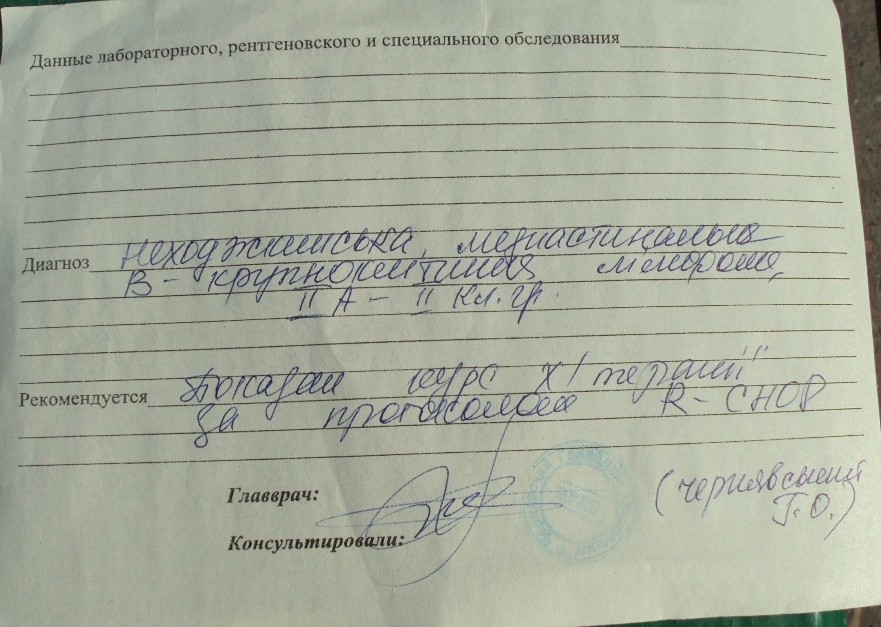 Данные лабораторного, рентгеновского и специального обследования
Диагноз Неходжкинська, медиастинальна
В - крупноклитинна лімфома,
II А - II кл. гр.
Рекомендуется Показан курс х/терапії
за протоколом R-CHOP
Главврач:
(Чернявський
Г.О.)
Консультировали: